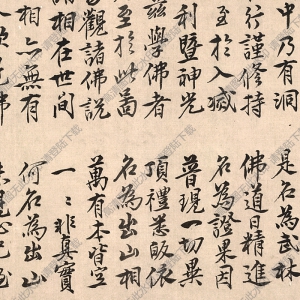 中乃有洞
行謹修持
至於入滅
利暨神光
茲學佛者
至於此啚
觀諸佛說
相在世間
相亦無有
是名為武林
佛道日精進
名為證果因
普現一切異
頂禮悉皈依
名為出山相
萬有本皆空
一一非真實
何名為出山